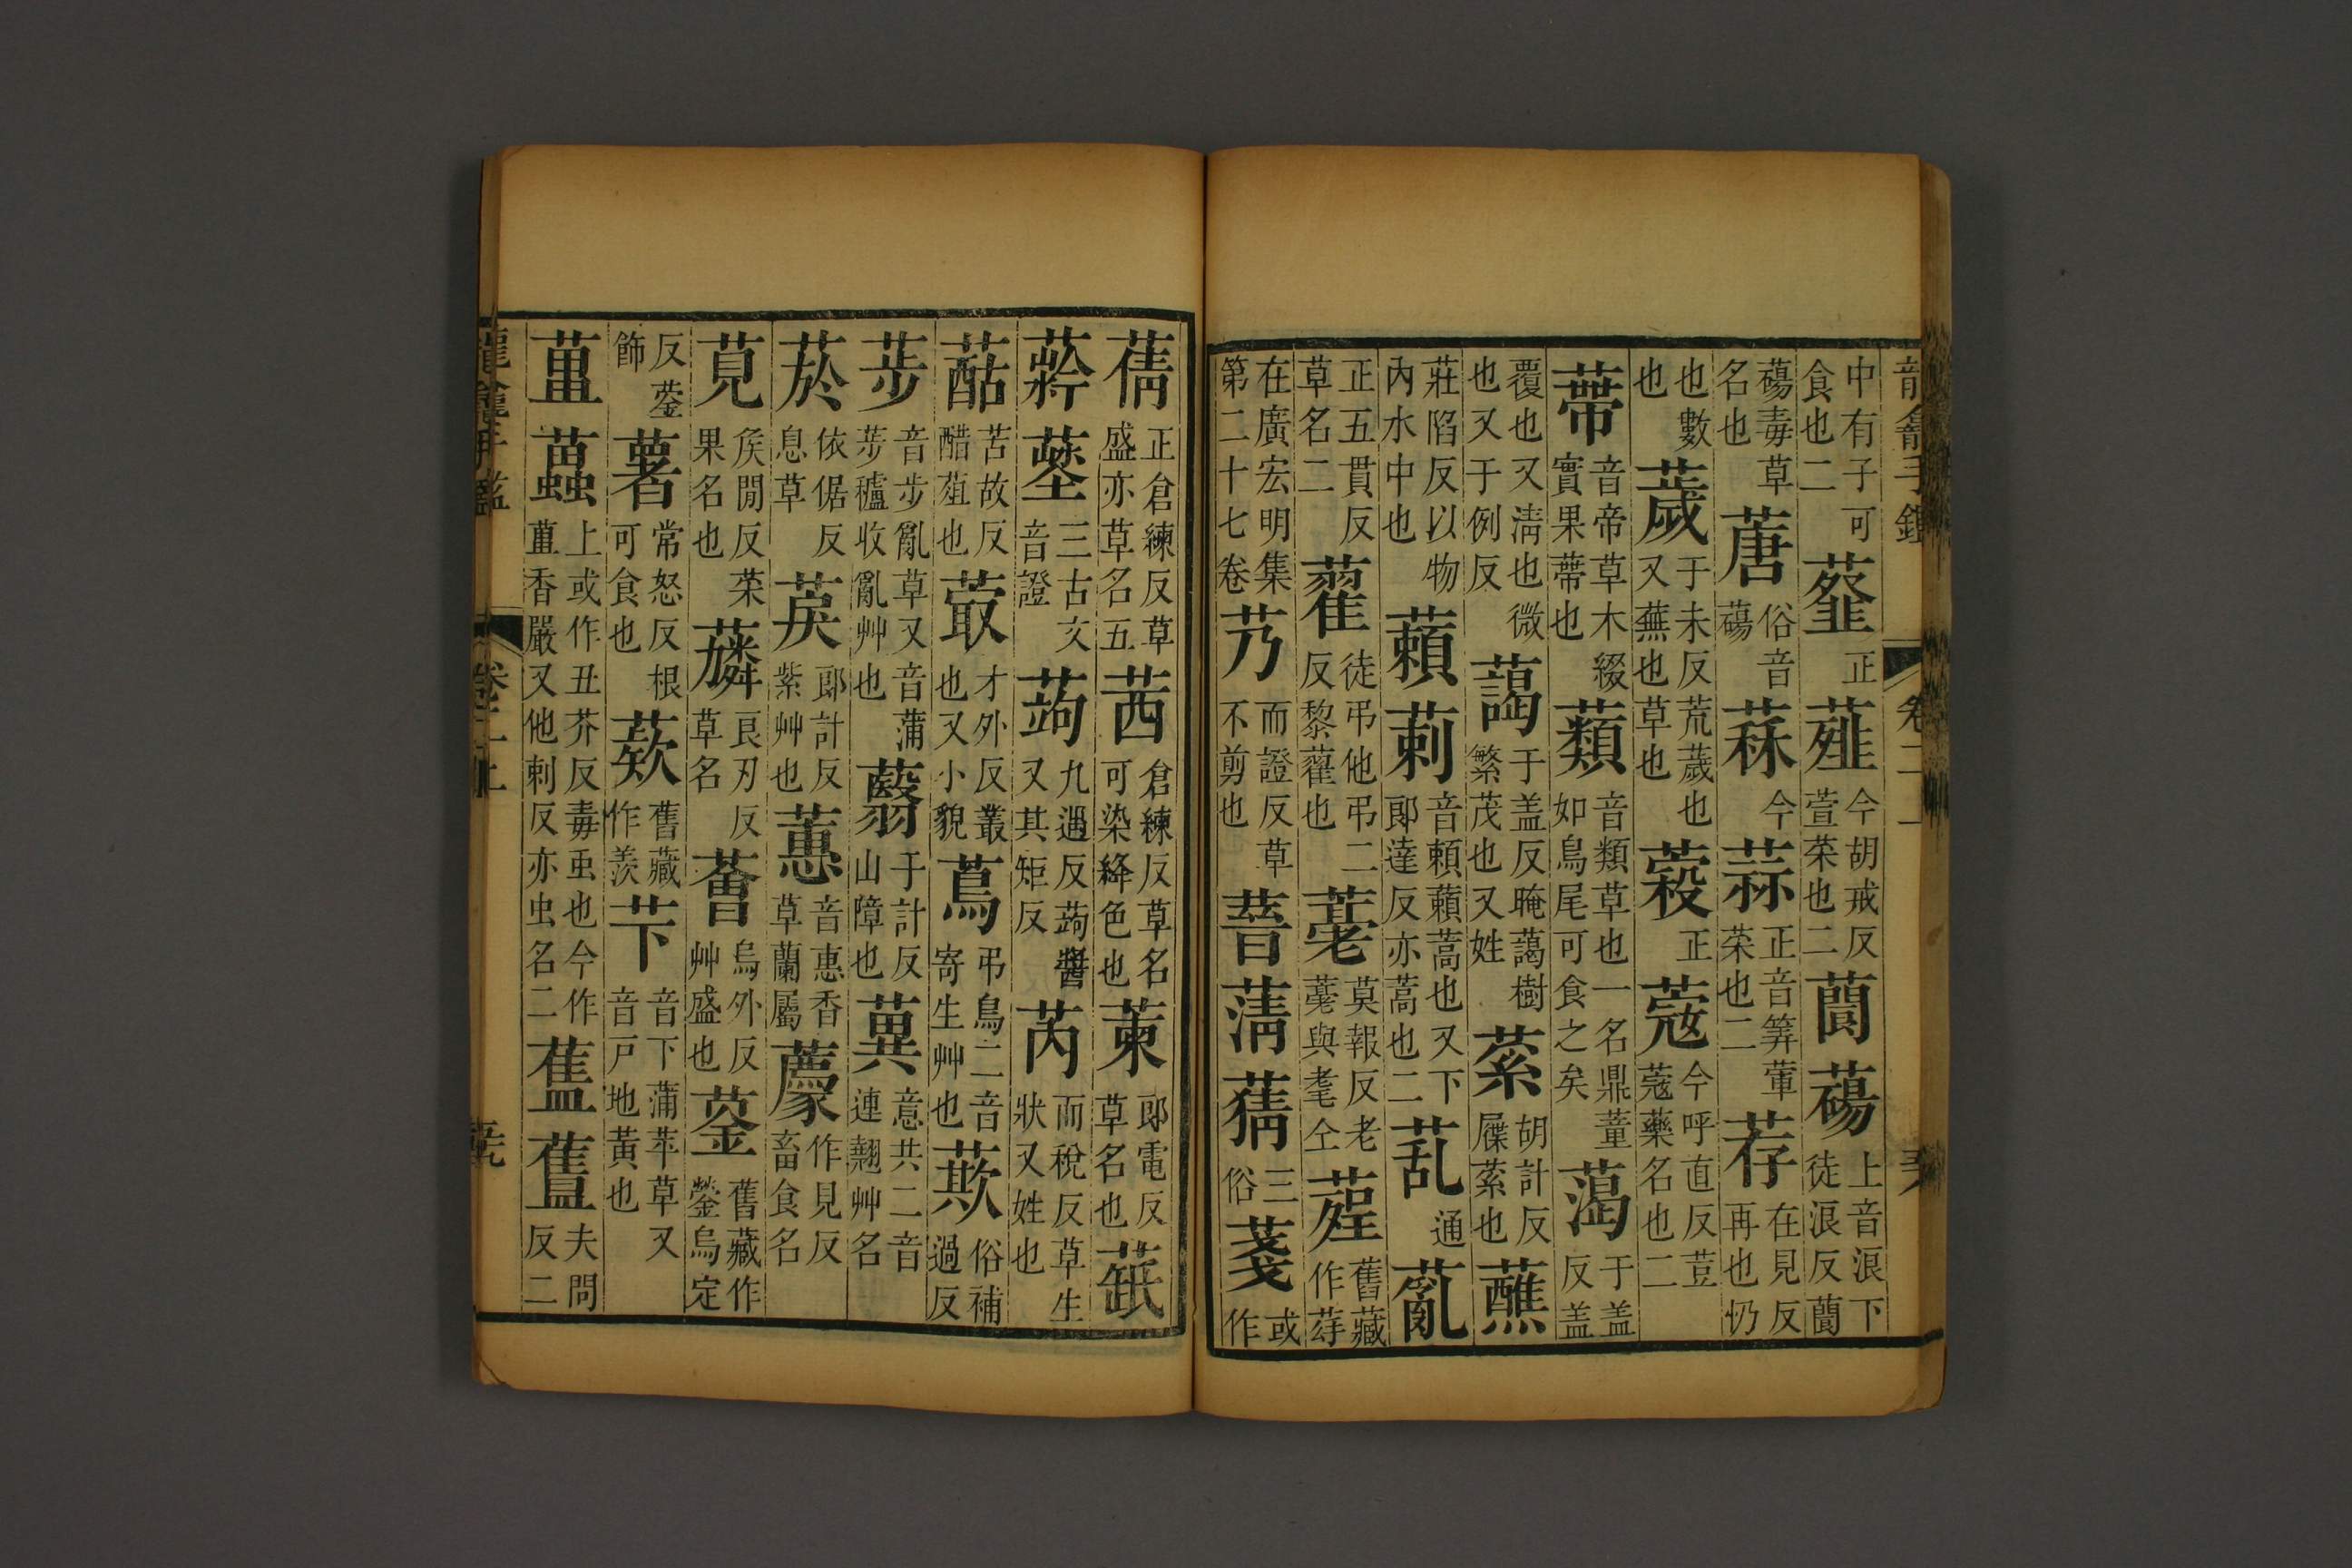 龍龕手鑑 卷二上
中有子可食也二 䪥 正 薤 今胡戒反葷菜也二 蘭 蕩 上音浪下徒浪反蘭
蕩毒草名也 蓎 俗音蕩 菻 今 蒜 正音筭葷菜也二 荐 在見反再也仍
也數也 薉 于未反荒薉也又蕪也草也 蔱 正 蔻 今呼直反荳蔻藥名也二
蔕 音帝草木綴實果蔕也 蘱 音類草也一名鼎董如鳥尾可食之矣 蔼 于盖反盖
覆也又清也微也又于例反 藹 于盖反晻藹樹繁茂也又姓 綦 胡計反屧綦也 蘸
莊陷反以物內水中也 藾 莿 音賴藾蒿也又下郞達反亦蒿也二 乱 通 薍
正五貫反草名二 藋 徒弔他弔二反藜藋也 薹 莫報反老薹與耄仝 蓙 舊藏作莩
在廣宏明集第二十七卷 艿 而證反草不剪也 蒈 蔳 蒨 三俗 菱 或作
蒨 正倉練反草盛亦草名五 茜 倉練反草名可染絳色也 萰 郞電反草名也 蔱
三古文音證 蒟 九遇反蒟醬又其矩反 芮 而稅反草生狀又姓也
䓢 苦故反醋葅也 蕞 才外反叢也又小貌 蔦 弔鳥二音寄生艸也 蔌 俗補過反
荹 音步亂草又音蒲荹穭收亂艸也 蘙 于計反山障也 蕻 意共二音連翹艸名
菸 依倨反息草 䓞 郞計反紫艸也 蕙 音惠香草蘭屬 蘪 作見反畜食名
莧 矦閒反菜果名也 藺 良刃反草名 薈 烏外反艸盛也 蓥 舊藏作鎣烏定
反蓥飾 薯 常恕反根可食也 蔌 舊藏作羨 芐 音下蒲苹草又音戸地黃也
蘁 蠆 上或作丑芥反毒虫也今作薑香嚴又他剌反亦虫名二 蕰 藴 夫問反二
龍龕手鑑 卷二上